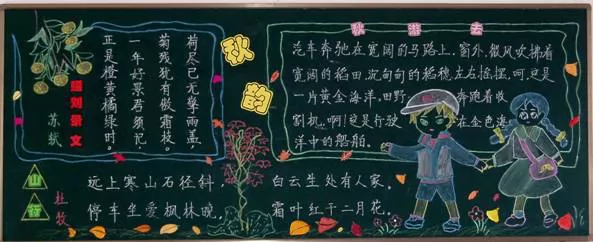 赠刘景文
苏轼
荷尽已无擎雨盖,
菊残犹有傲霜枝。
一年好景君须记,
正是橙黄橘绿时。
秋韵
秋游去
汽车奔驰在宽阔的马路上,窗外,微风吹拂着
宽阔的稻田,沉甸甸的稻穗左右摇摆,呵,这是
一片黄金海洋.田野 奔跑着收
割机,啊!这是行驶 在金色海
洋中的船舶.
山行
杜牧
远上寒山石径斜, 白云生处有人家。
停车坐爱枫林晚, 霜叶红于二月花。